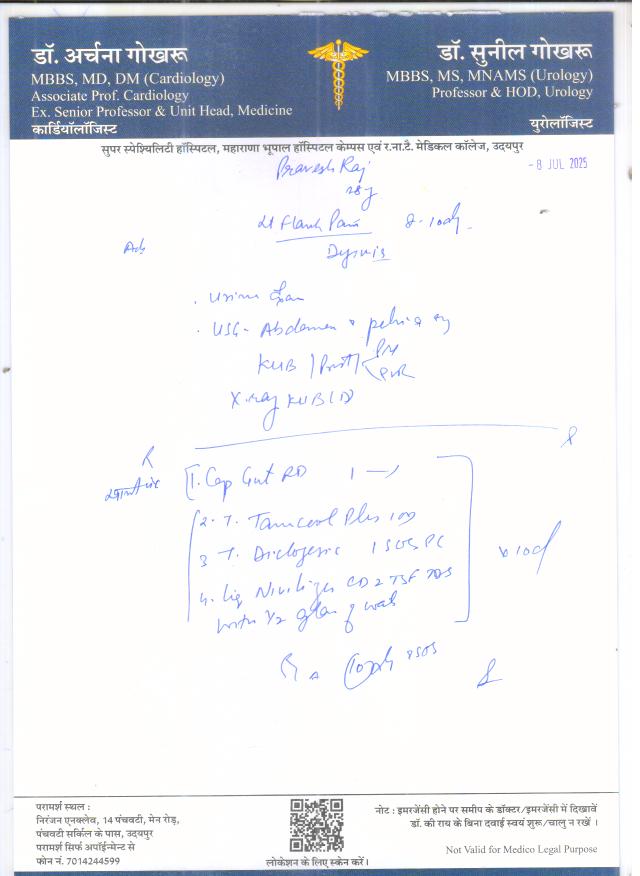 डॉ. अर्चना गोखरू
MBBS, MD, DM (Cardiology)
Associate Prof. Cardiology
Ex. Senior Professor & Unit Head, Medicine
कार्डियॉलॉजिस्ट
डॉ. सुनील गोखरू
MBBS, MS, MNAMS (Urology)
Professor & HOD, Urology
युरोलॉजिस्ट
सुपर स्पेश्यिलिटी हॉस्पिटल, महाराणा भूपाल हॉस्पिटल केम्पस एवं र.ना.टै. मेडिकल कॉलेज, उदयपुर
- 8 JUL 2025
Pravesh Raj
28y
Lt Flank Pain 8-10d
Adv
. Urine
. USG - Abdomen & pelvis
KUB / Prost / PVR
X-ray KUB
R
1. Cap RD 1
2. T. Plus
3 T. 1 SOS PC
4. Liq 2 TSF TDS
with 1/2 glass of
x 10d
10d SOS
परामर्श स्थल :
निरंजन एनक्लेव, 14 पंचवटी, मेन रोड़,
पंचवटी सर्किल के पास, उदयपुर
परामर्श सिर्फ अपॉईन्मेन्ट से
फोन नं. 7014244599
लोकेशन के लिए स्केन करें।
नोट : इमरजेंसी होने पर समीप के डॉक्टर/इमरजेंसी में दिखावें
डॉ. की राय के बिना दवाई स्वयं शुरू/चालु न रखें ।
Not Valid for Medico Legal Purpose